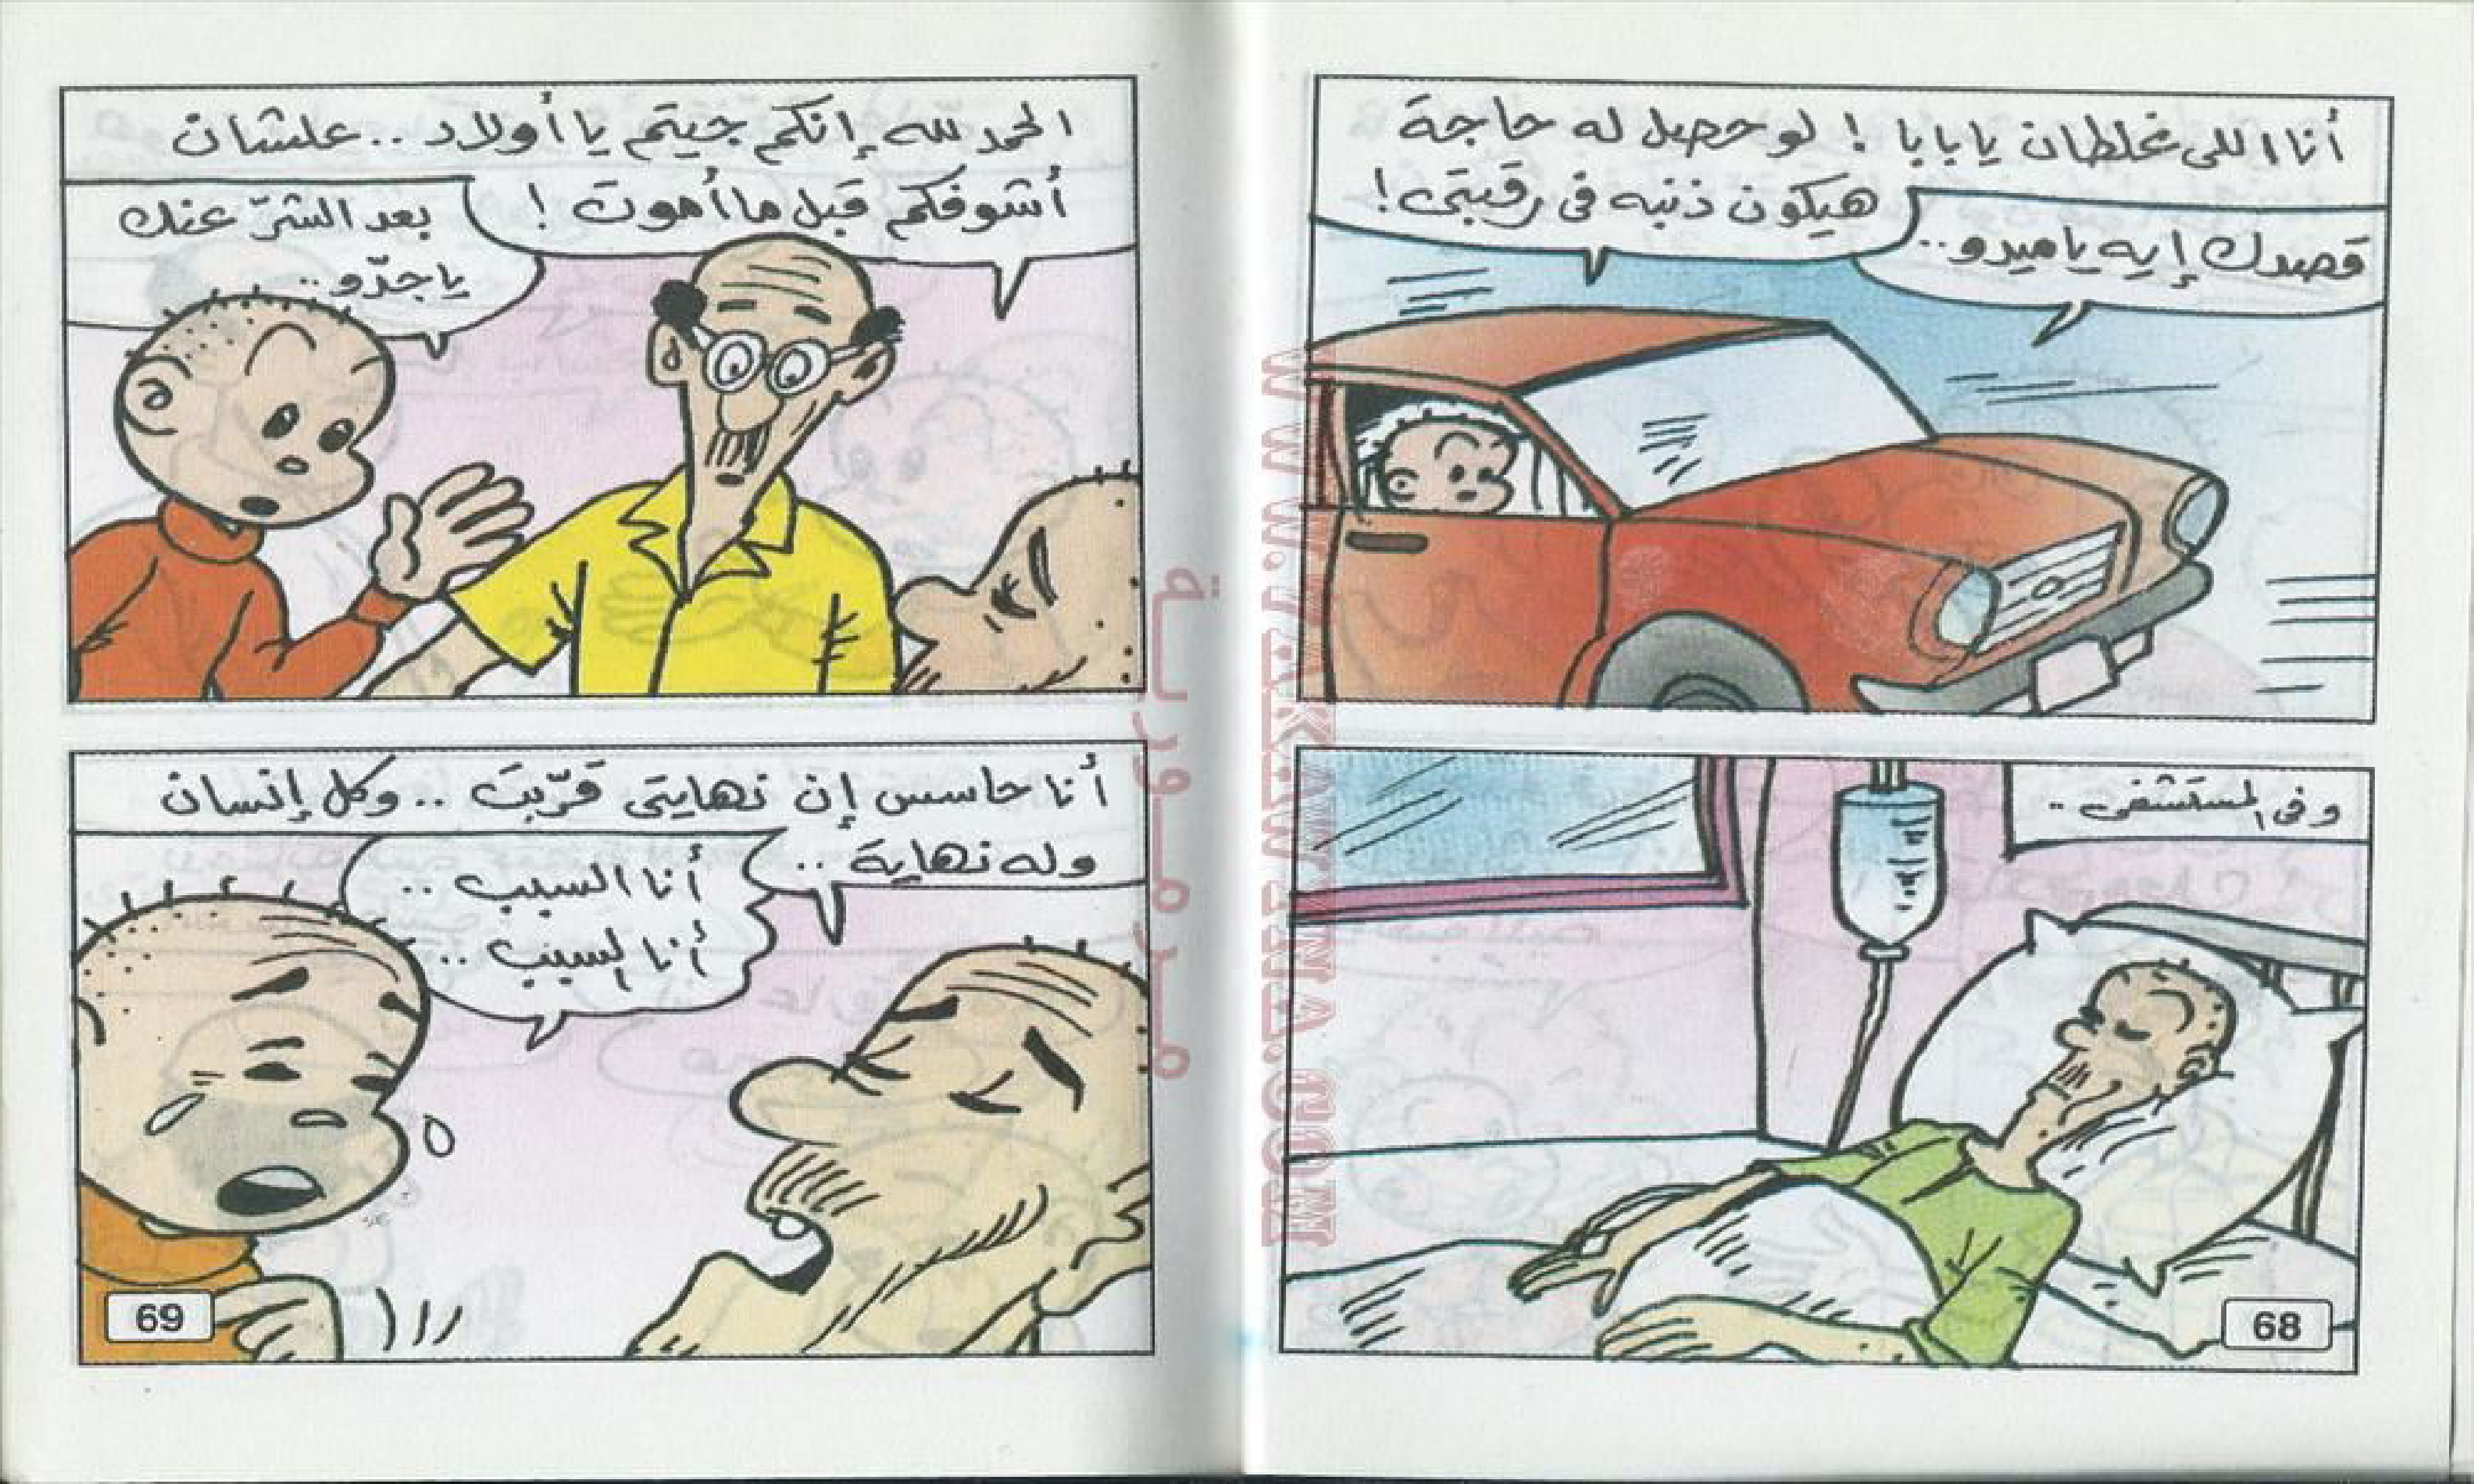 أنا اللى غلطان يا بابا ! لو حصل له حاجة
هيكون ذنبه فى رقبتى !
قصدك إيه يا ميدو ..
وفى المستشفى ..
68
الحمد لله إنكم جيتم يا أولاد .. علشان
أشوفكم قبل ما أموت !
بعد الشرّ عنك
يا جدّو ..
أنا حاسس إن نهايتى قرّبت .. وكل إنسان
وله نهاية ..
أنا السبب ..
أنا السبب ..
69
مرمورية